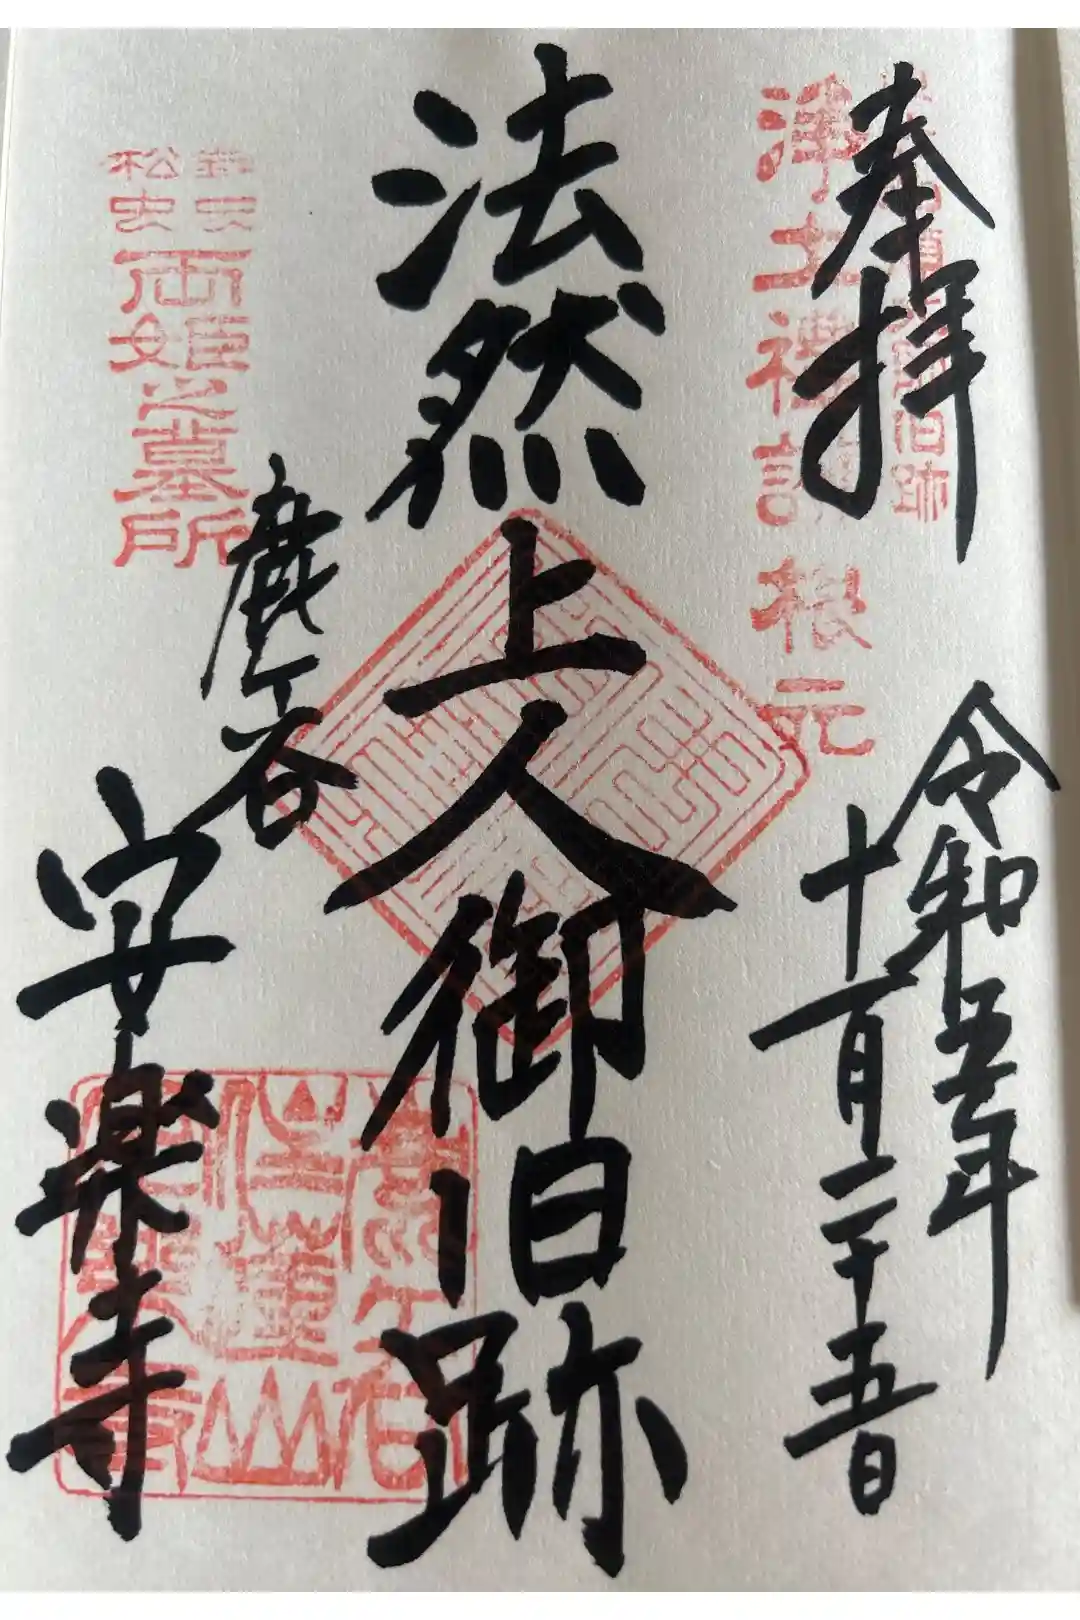 奉拝
浄土禮讃根元
旧跡
令和五年
十一月二十五日
法然上人御旧跡
鹿ヶ谷
安楽寺
鈴虫
松虫
両姫之墓所